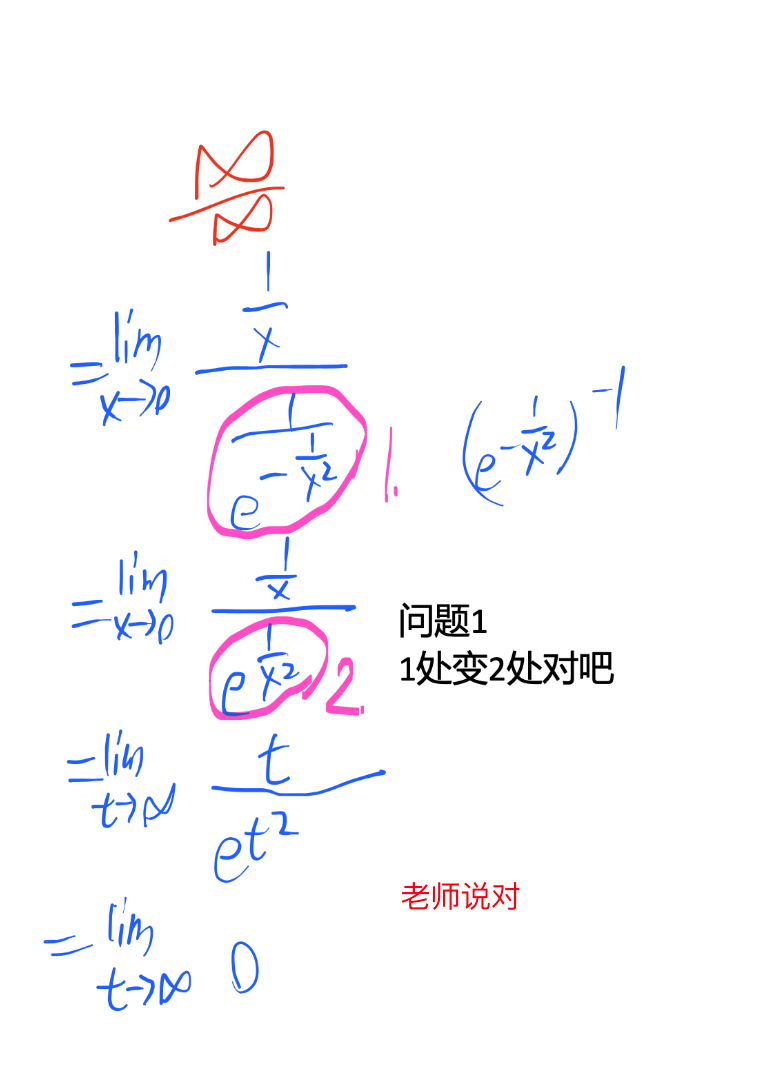 ∞/∞
= lim x→0 (1/x)/(1/e^(-1/x²)) 1. (e^(-1/x²))^(-1)
= lim x→0 (1/x)/(e^(1/x²)) 2.
问题1
1处变2处对吧
= lim t→∞ t/e^(t²)
老师说对
= lim t→∞ 0